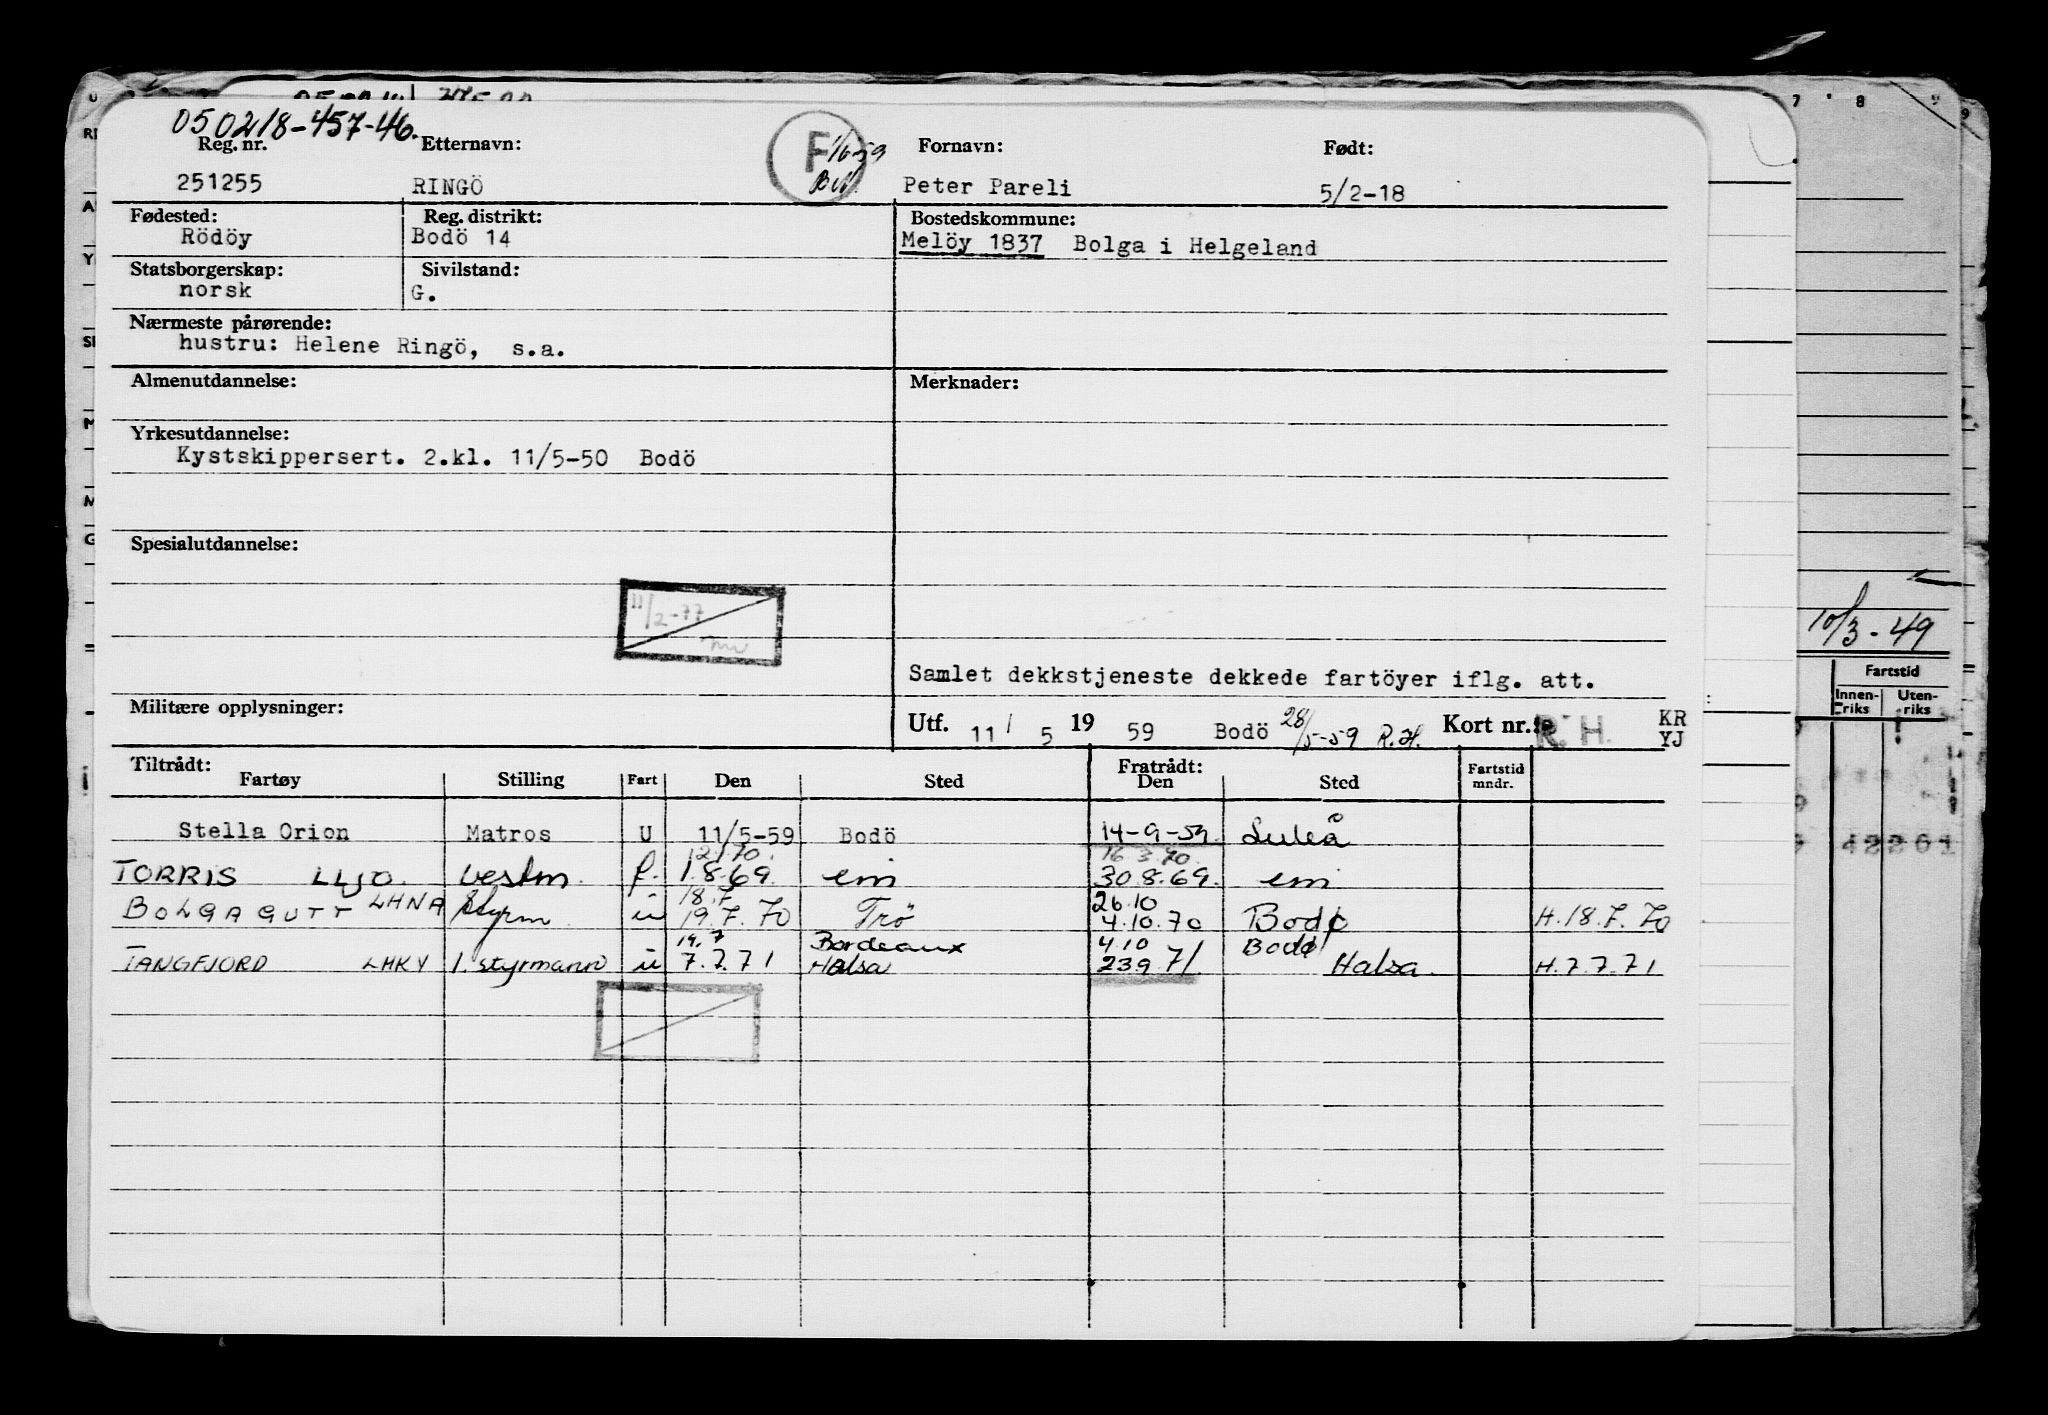 050218-457-46.
Reg. nr. Etternavn: Fornavn: Født:
251255 RINGÖ F 1/6-59 Peter Pareli 5/2-18
Fødested: Reg. distrikt: Bostedskommune:
Rödöy Bodö 14 Melöy 1837 Bolga i Helgeland
Statsborgerskap: Sivilstand:
norsk G.
Nærmeste pårørende:
hustru: Helene Ringö, s.a.
Almenutdannelse: Merknader:
Yrkesutdannelse:
Kystskippersert. 2.kl. 11/5-50 Bodö
Spesialutdannelse:
11/2-77
10/3-49
Samlet dekkstjeneste dekkede fartöyer iflg. att.
Fartstid
Innenriks Utenriks
Militære opplysninger: Utf. 11/5 1959 Bodö 28/5-59 R.H. Kort nr.: R.H. KR
YJ
Tiltrådt: Fratrådt: Fartstid
Fartøy Stilling Fart Den Sted Den Sted mndr.
Stella Orion Matros U 11/5-59 Bodö 14-9-59. Luleå
12.1.70. 16.3.70.
TORRIS LLJO. vestm. f. 1.8.69. em 30.8.69. em
18.7 26.10
BOLGAGUTT LHNA Styrm u 19.7.70 Trö 4.10.70 Bodø H.18.7.70
19.7 Bordeaux 4.10 Bodø
TANGFJORD LHKY 1. styrmann u 7.7.71 Halsa 23.9.71 Halsa. H.7.7.71